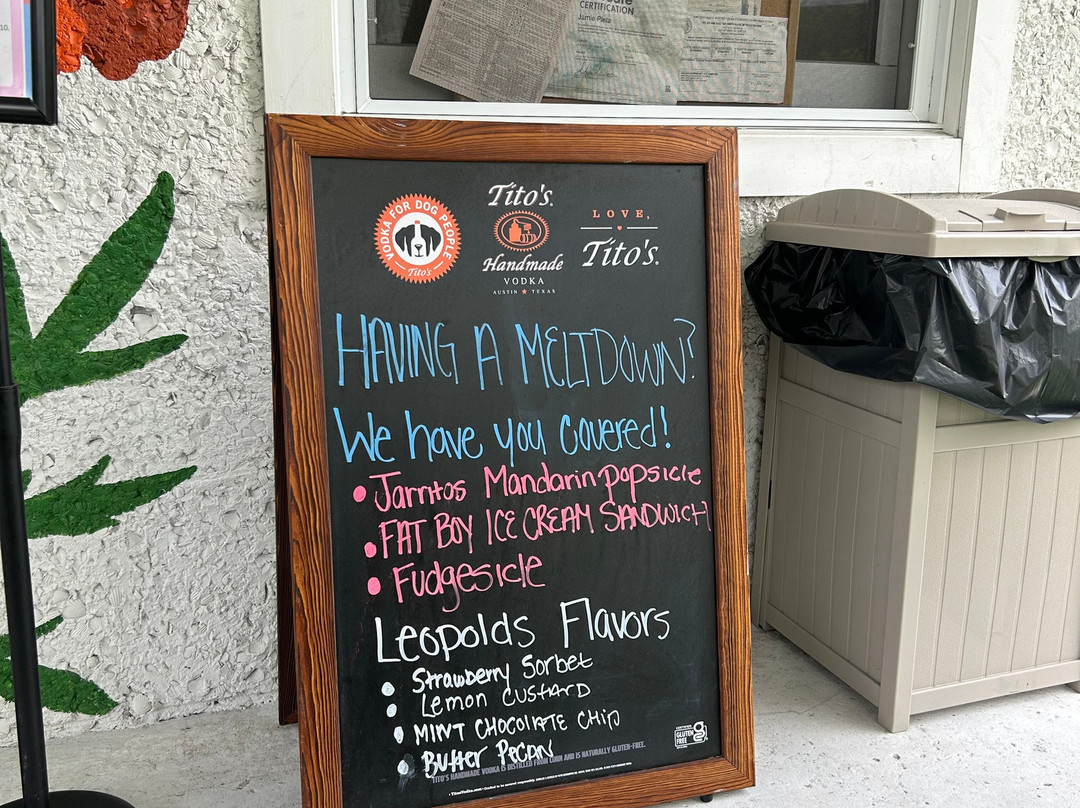 10.
CERTIFICATION
Jamie Pleta
VODKA FOR DOG PEOPLE
Tito's
Tito's
Handmade
VODKA
AUSTIN TEXAS
LOVE,
Tito's.
HAVING A MELTDOWN?
We have you covered!
• Jarritos Mandarin popsicle
• FAT BOY ICE CREAM SANDWICH
• Fudgesicle
Leopolds Flavors
• Strawberry Sorbet
• Lemon CUSTARD
• MINT CHOCOLATE CHIP
• Butter PECAN
TITO'S HANDMADE VODKA IS DISTILLED FROM CORN AND IS NATURALLY GLUTEN-FREE.
CERTIFIED
GLUTEN
FREE